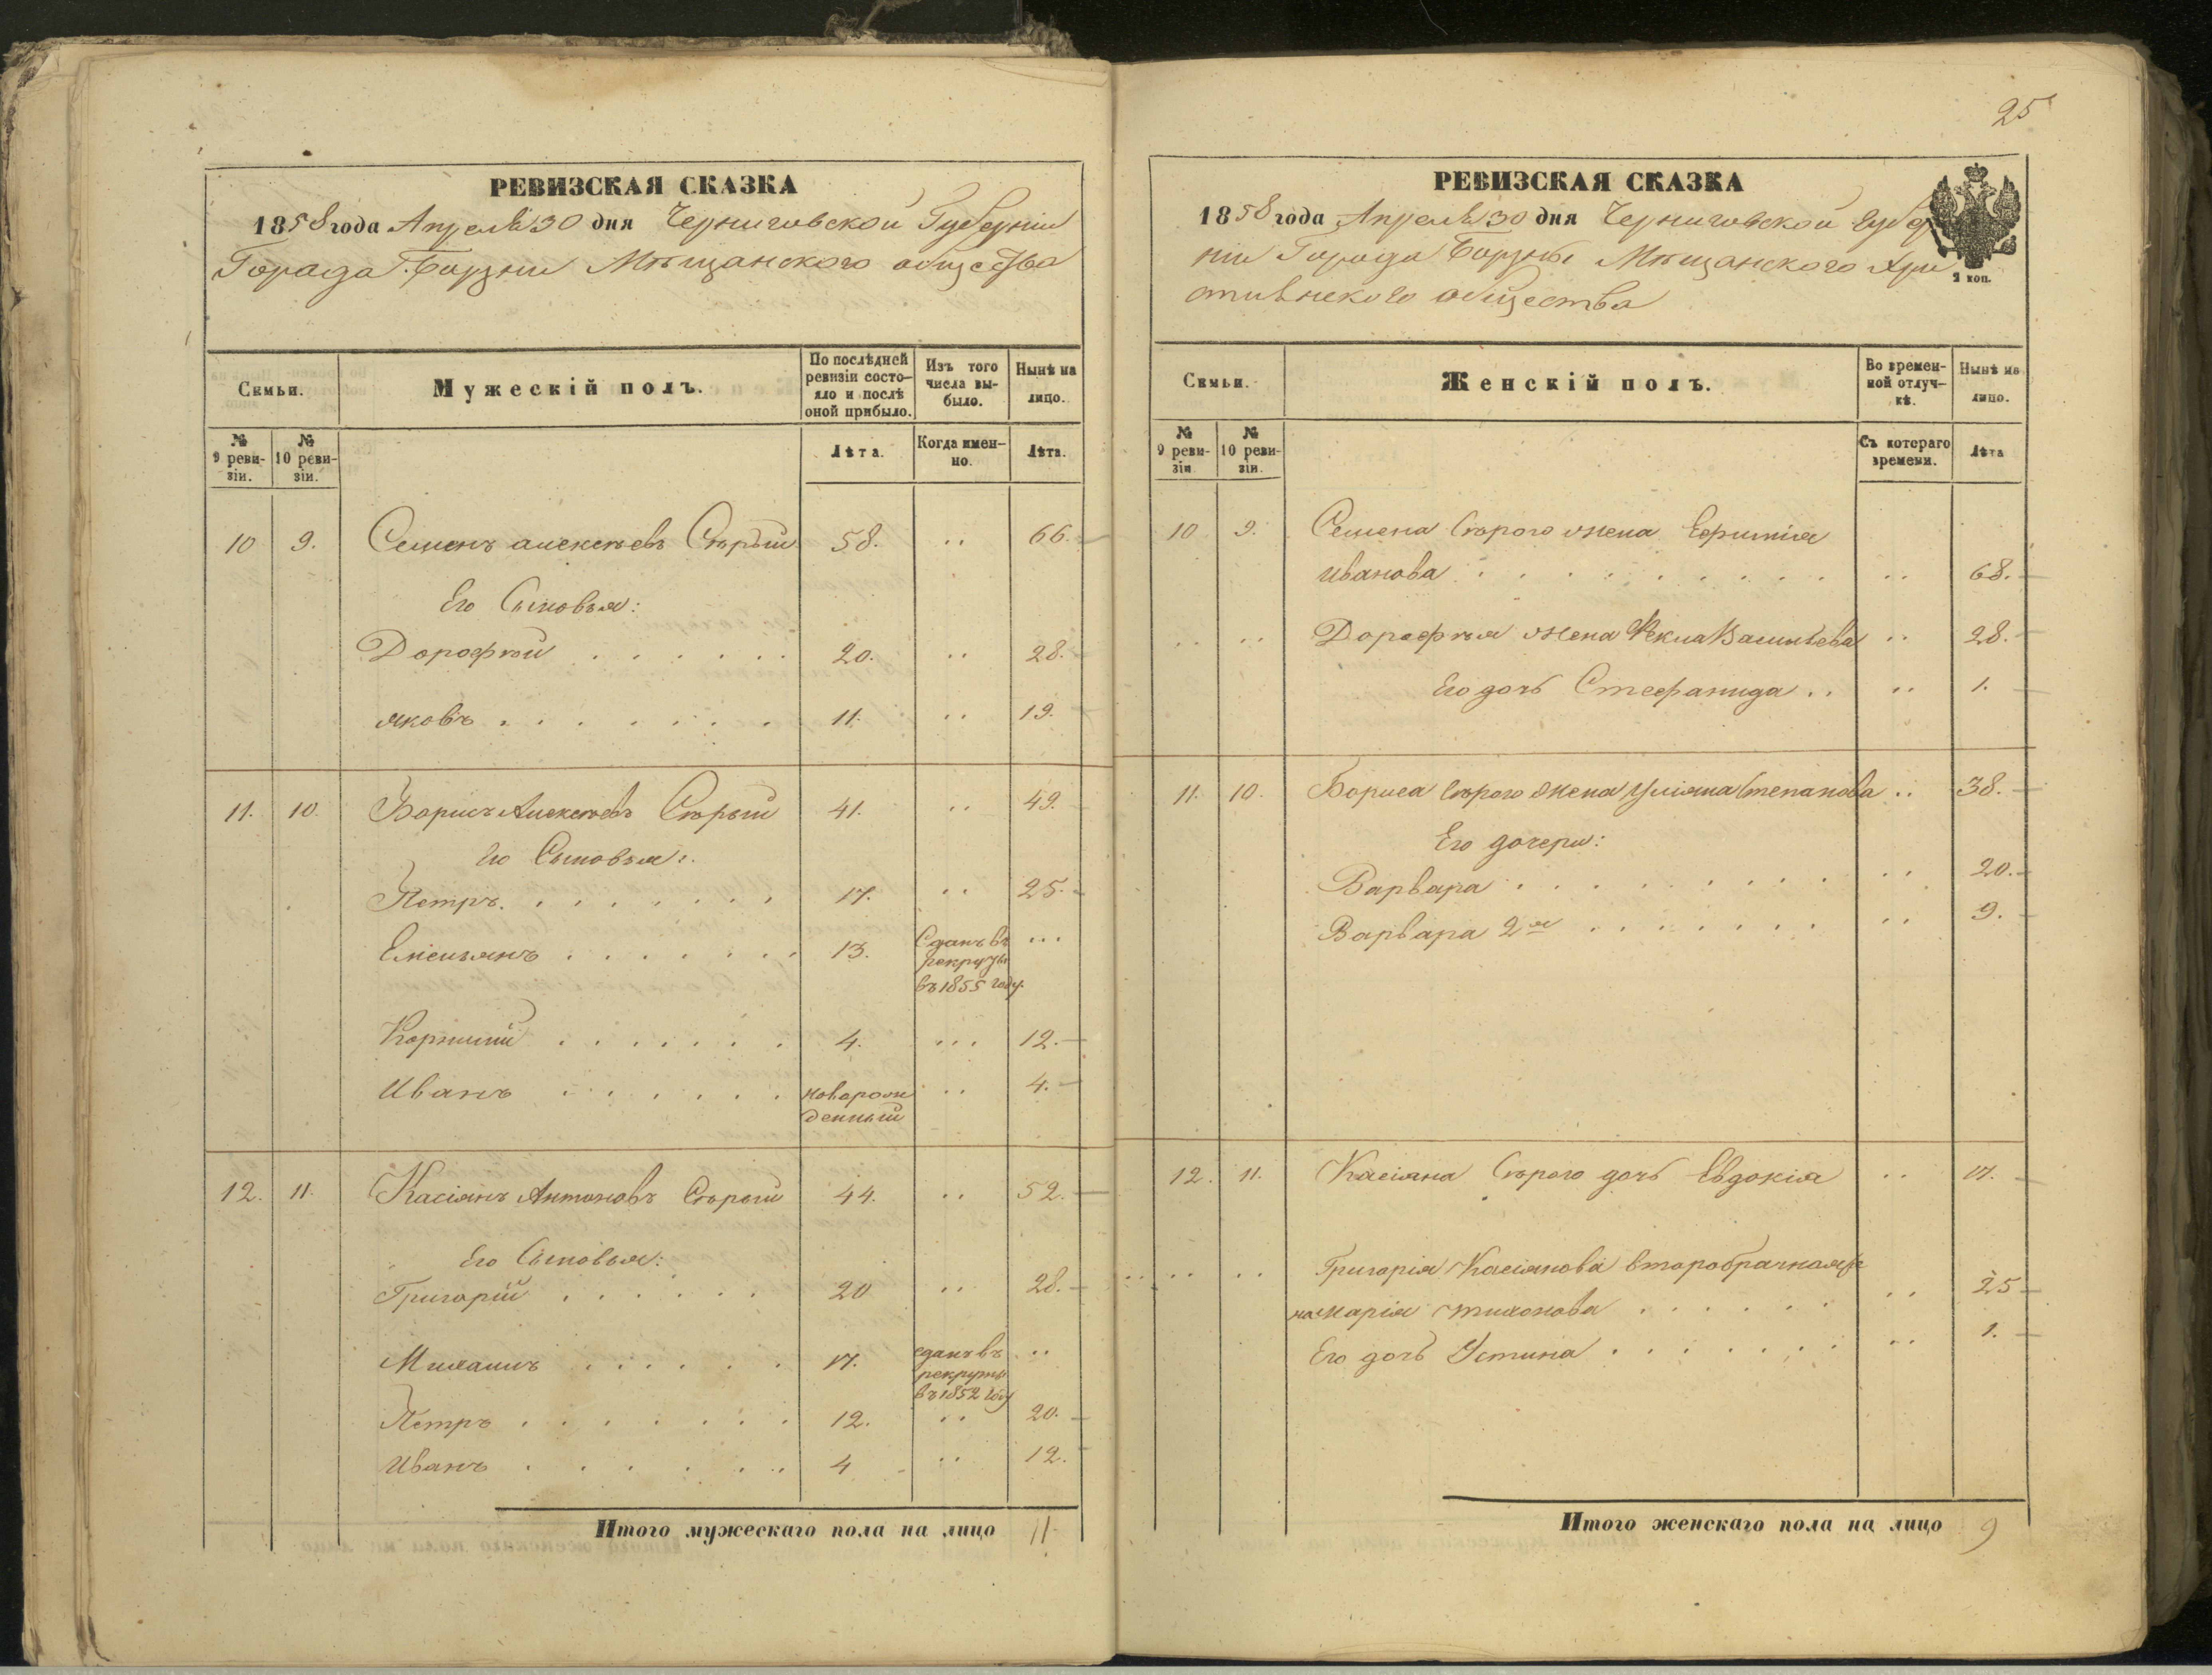 РЕВИЗСКАЯ СКАЗКА
1858 года Апреля 30 дня Черниговской Губерніи
Города Борзни Мѣщанского общества
Семьи.
Мужескій полъ.
По послѣдней ревизіи состо-
яло и послѣ оной прибыло.
Изъ того числа вы-
было.
Нынѣ на лицо.
№ 9 реви-
зіи.
№ 10 реви-
зіи.
Лѣта.
Когда имен-
но.
Лѣта.
10 9. Семенъ Алексѣевъ Сѣрый 58. .. 66.
Его Сыновья:
Дорофѣй . . . . . . 20. .. 28.
Яковъ . . . . . . . 11. .. 19.
11. 10. Борисъ Алексѣевъ Сѣрый 41. .. 49.
Его Сыновья:
Петръ . . . . . . . 17. .. 25.
Емельянъ . . . . . . . 13. Сданъ въ рекруты въ 1855 году. ...
Корнилій . . . . . . 4. ... 12.
Иванъ . . . . . . новорож
денный .. 4.
12. 11. Касіянъ Антоновъ Сѣрый 44. .. 52.
Его Сыновья:
Григорій . . . . . . 20 .. 28.
Михаилъ . . . . . . 17. сданъ въ рекруты въ 1852 году ..
Петръ . . . . . . . 12. .. 20.
Иванъ . . . . . . 4 .. 12.
Итого мужескаго пола на лицо 11.
25
РЕВИЗСКАЯ СКАЗКА
1858 года Апреля 30 дня Черниговской Губер
ніи Города Борзны Мѣщанского Хри
стиянского общества
2 коп.
Семьи.
Женскій полъ.
Во времен-
ной отлуч-
кѣ.
Нынѣ на лицо.
№ 9 реви-
зіи
№ 10 реви-
зіи.
Съ котораго времени.
Лѣта
10 9. Семена Сѣрого жена Ефимія
Иванова . . . . . . . . . .. 68.
.. .. Дорофѣя жена Фекла Васильева .. 28.
Его дочь Стефанида .. .. 1.
11. 10. Бориса Сѣрого жена Уліяна Степанова .. .. 38.
Его дочери:
Варвара . . . . . . . . .. 20.
Варвара 2я . . . . . . . .. 9.
12. 11. Касіяна Сѣрого дочь Евдокія .. 17.
.. .. Григорія Касіянова второбрачная же
на Марія Тихонова . . . . . . .. 25
Его дочь Устина . . . . . . . .. 1.
Итого женскаго пола на лицо 9